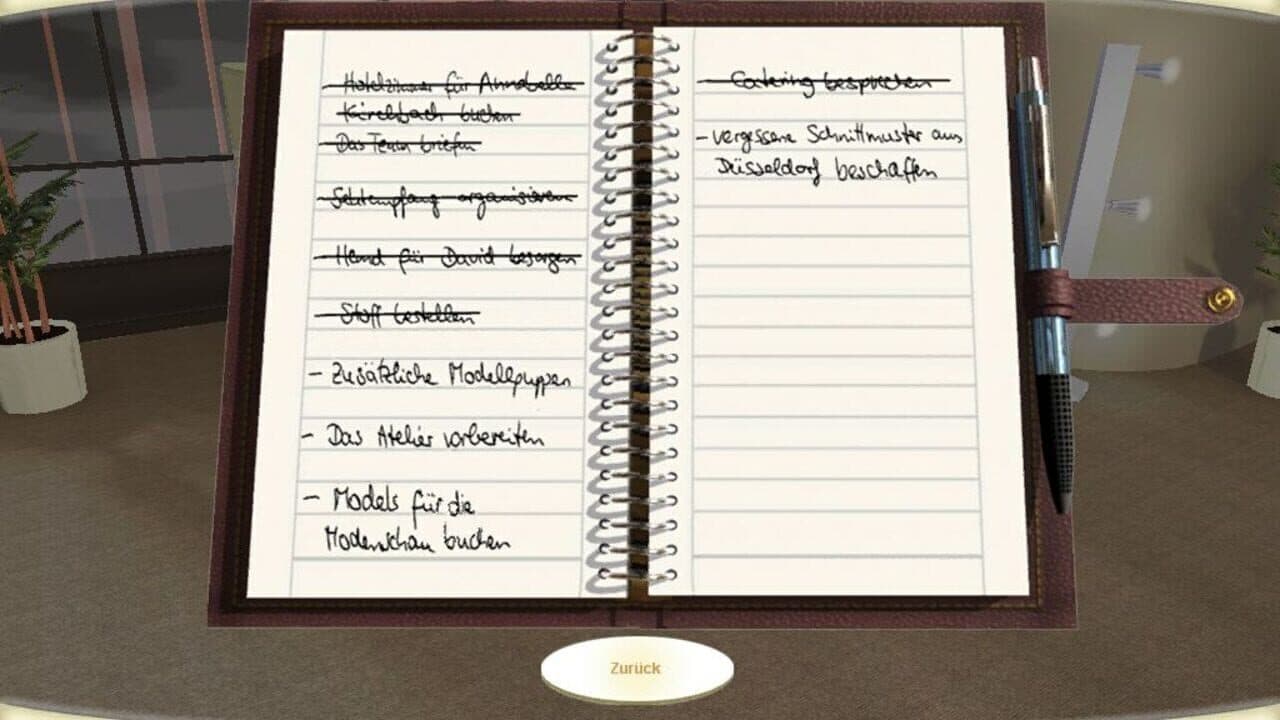 - Hotelzimmer für Annabelle
Kirchbach buchen
- Das Team briefen
- Sektempfang organisieren
- Hemd für David besorgen
- Stoff bestellen
- Zusätzliche Modellpuppen
- Das Atelier vorbereiten
- Models für die
Modenschau buchen
- Catering besprechen
- vergessene Schnittmuster aus
Düsseldorf beschaffen
Zurück